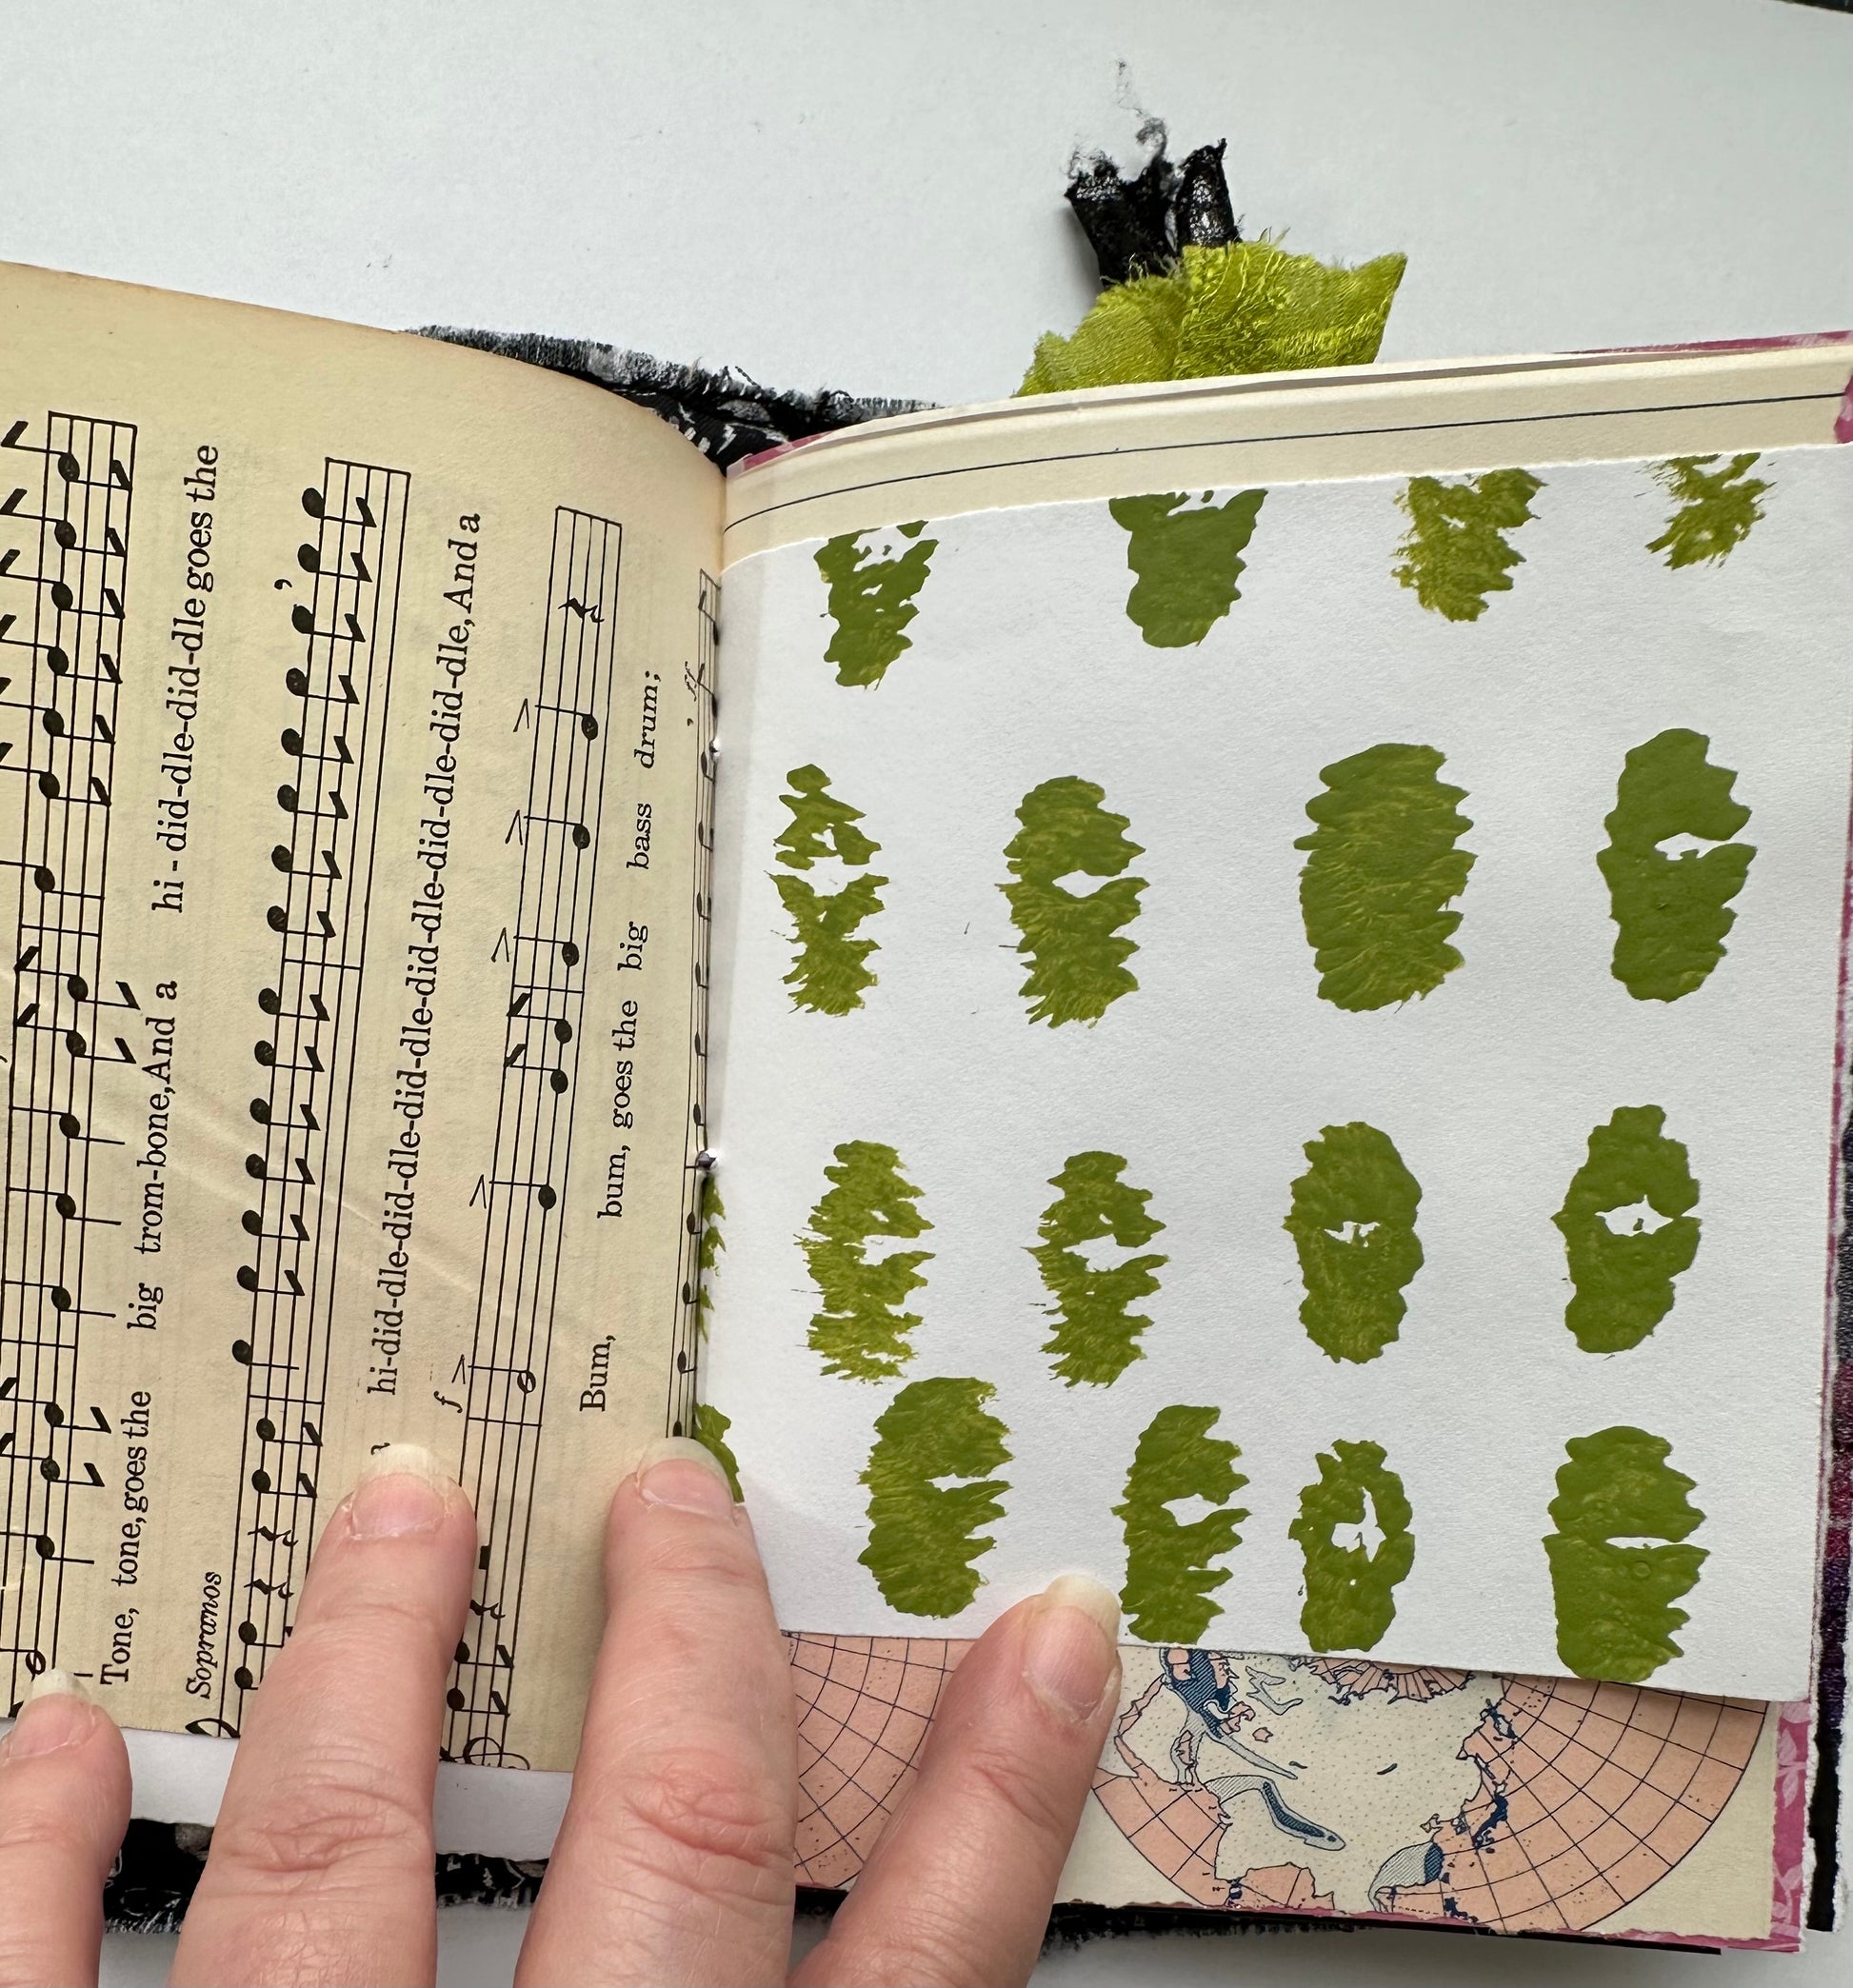 hi - did-dle-did-dle goes the
Tone, tone, goes the big trom-bone, And a
Sopranos
hi-did-dle-did-dle-did-dle-did-dle-did-dle-did-dle-did-dle, And a
f
Bum, bum, goes the big bass drum;
ff